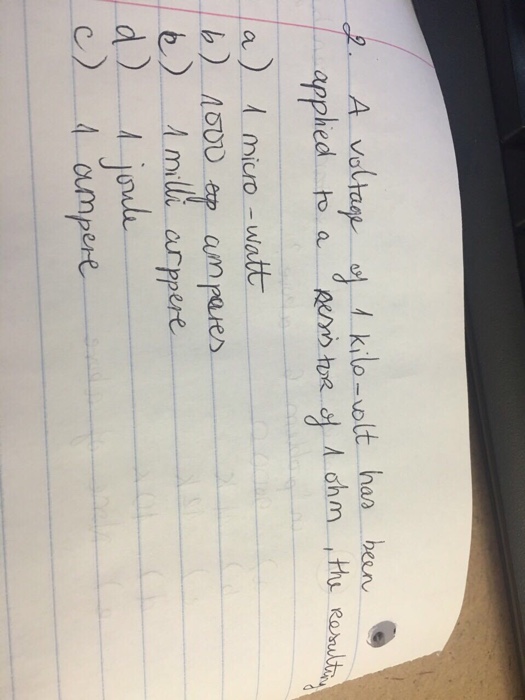 2. A voltage of 1 kilo-volt has been
applied to a resistor of 1 ohm, the resulting
a) 1 micro-watt
b) 1000 amperes
e) 1 milli ampere
d) 1 joule
c) 1 ampere